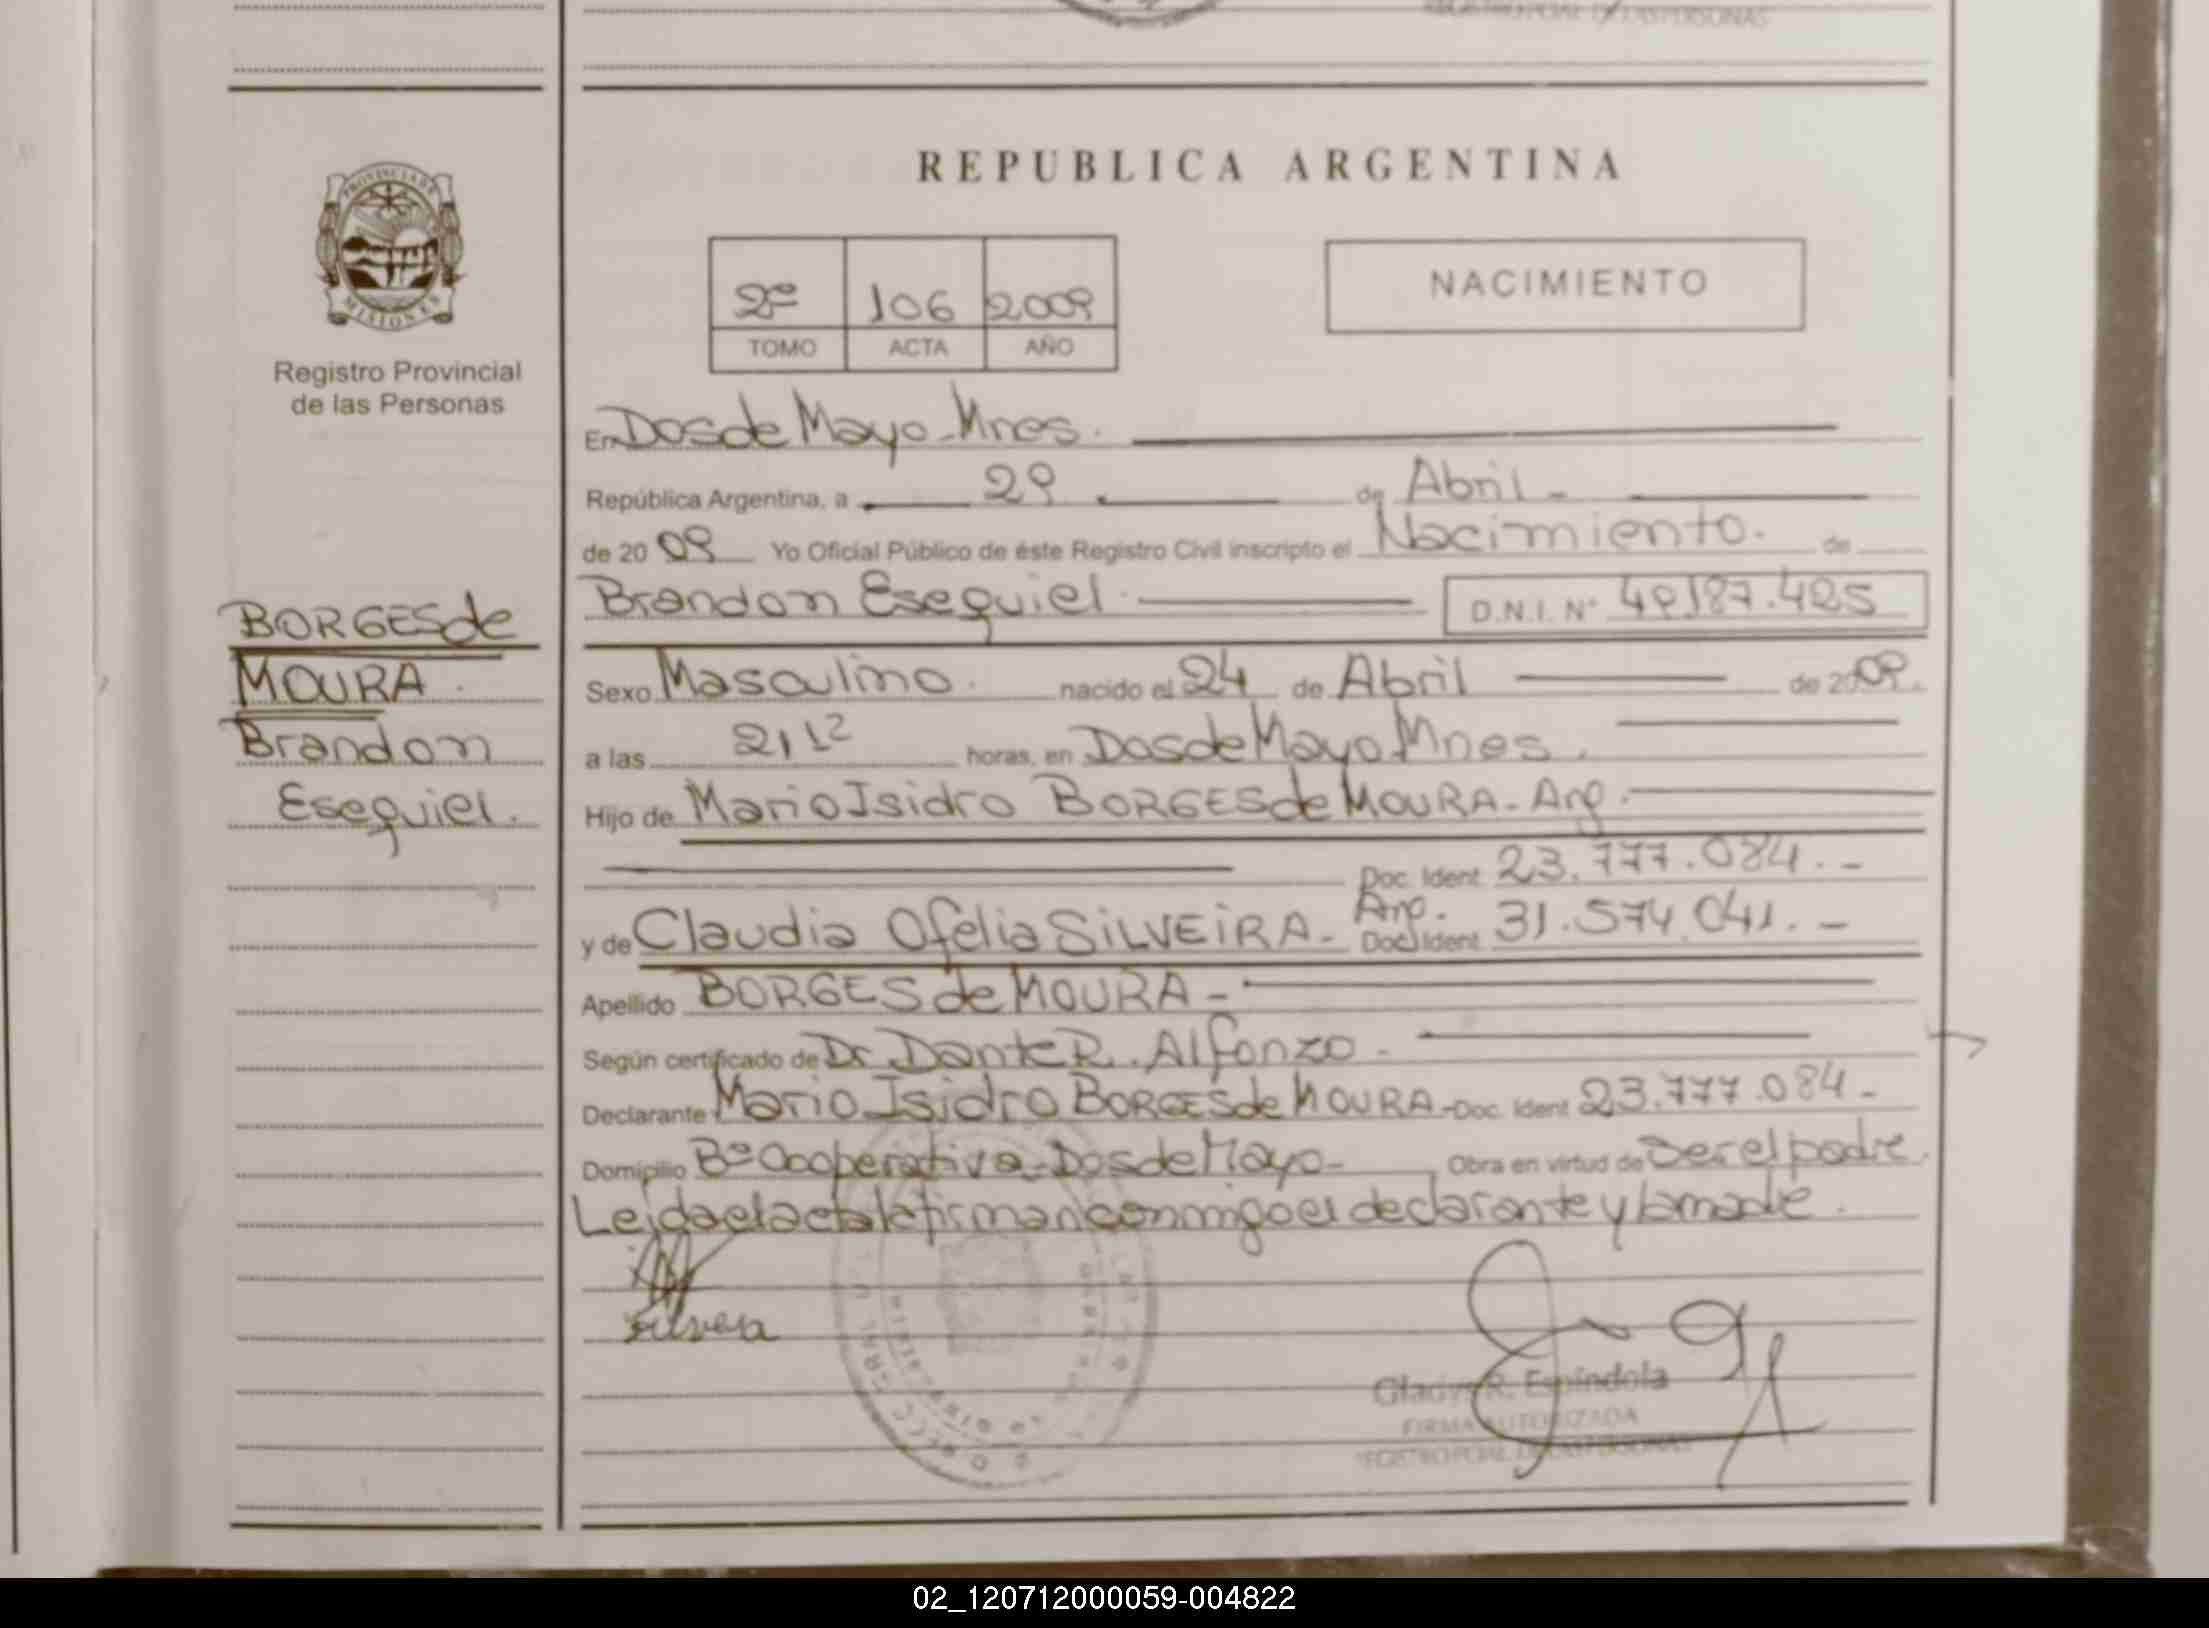 REGISTRO PCIAL. DE LAS PERSONAS
PROVINCIA DE
MISIONES
Registro Provincial
de las Personas
BORGES de
MOURA
Brandon
Esequiel.
REPUBLICA ARGENTINA
2º 106 2009
TOMO ACTA AÑO
NACIMIENTO
En Dos de Mayo - Mnes.
República Argentina, a 29 de Abril -
de 20 09 Yo Oficial Público de éste Registro Civil inscripto el Nacimiento. de
Brandon Esequiel D.N.I. Nº 49.187.425
Sexo Masculino. nacido el 24 de Abril de 2009.
a las 21 12 horas, en Dos de Mayo Mnes.
Hijo de Mario Isidro BORGES de MOURA - Arg.
Doc. Ident. 23.777.084. -
y de Claudia Ofelia SILVEIRA - Arg. Doc. Ident. 31.574.041. -
Apellido BORGES de MOURA -
Según certificado de Dr. Dante R. Alfonzo -
Declarante Mario Isidro BORGES de MOURA - Doc. Ident 23.777.084 -
Domicilio Bº Cooperativa - Dos de Mayo - Obra en virtud de Ser el padre.
Leida el acta la firman conmigo el declarante y la madre.
Gladys R. Espíndola
FIRMA AUTORIZADA
REGISTRO PCIAL. DE LAS PERSONAS
02_120712000059-004822